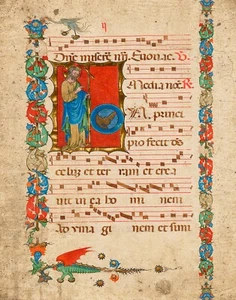 Dn̄e misere nr̄i. Euouae. V.
Media nocte. R.
princi
pio fecit de
celuz et ter ram et crea
uit in ea ho mi nem
ad yma gi nem et simi